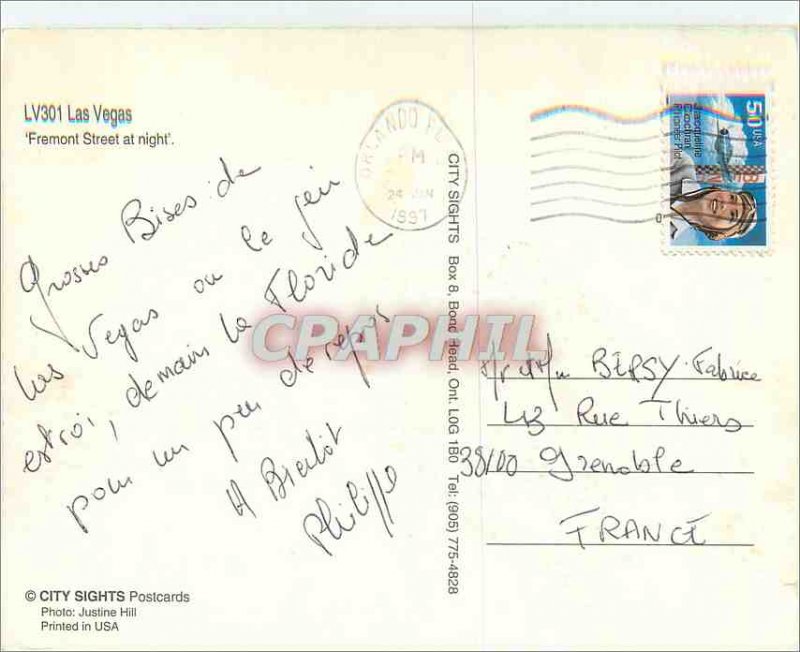 LV301 Las Vegas
'Fremont Street at night'.
Grosses Bises de
las Vegas ou le jeu
est roi, demain la Floride
pour un peu de repos
A Bientôt
Philippe
© CITY SIGHTS Postcards
Photo: Justine Hill
Printed in USA
CITY SIGHTS Box 8, Bond Head, Ont. L0G 1B0 Tel: (905) 775-4828
ORLANDO FL
PM
24 JUN
1997
50 USA
Jacqueline
Cochran
Pioneer Pilot
CPAPHIL
Mr et Mme Fabrice
Rue Thiers
38100 Grenoble
FRANCE